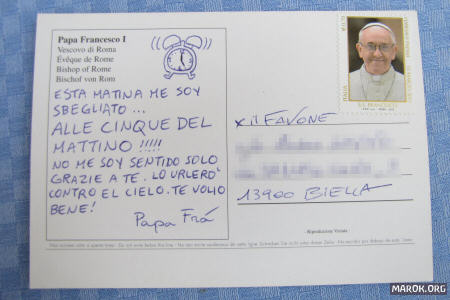 Papa Francesco I
Vescovo di Roma
Évêque de Rome
Bishop of Rome
Bischof von Rom
ESTA MATINA ME SOY
SBEGLIATO ...
ALLE CINQUE DEL
MATTINO !!!!!
NO ME SOY SENTIDO SOLO
GRAZIE A TE. LO URLERO'
CONTRO IL CIELO. TE VOLIO
BENE!
Papa Frá
ITALIA
S.S. FRANCESCO
X il FAVONE
13900 BIELLA
- Riproduzione Vietata -
MAROK.ORG